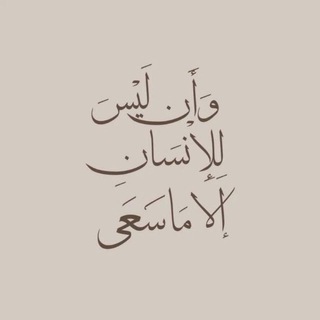 وَأَن لَيْسَ
لِلْإِنْسَانِ
إِلَّا مَا سَعَى